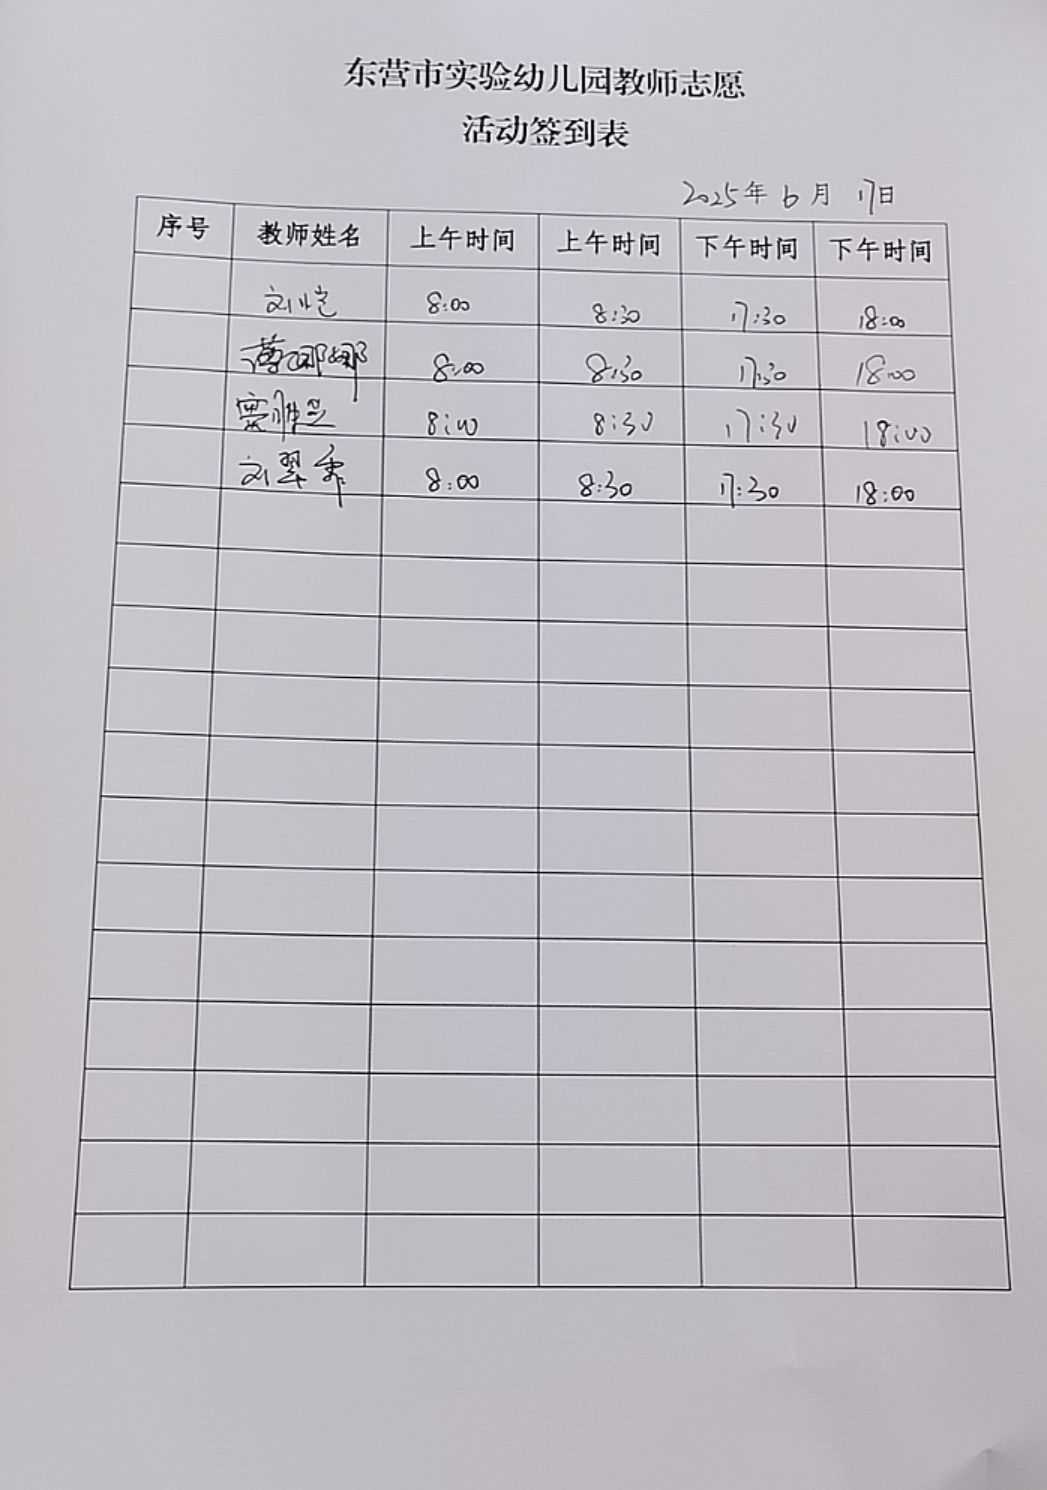 东营市实验幼儿园教师志愿
活动签到表
2025年6月17日
序号 教师姓名 上午时间 上午时间 下午时间 下午时间
刘恺 8:00 8:30 17:30 18:00
薄娜娜 8:00 8:30 17:30 18:00
贾雅兰 8:00 8:30 17:30 18:00
刘翠秀 8:00 8:30 17:30 18:00